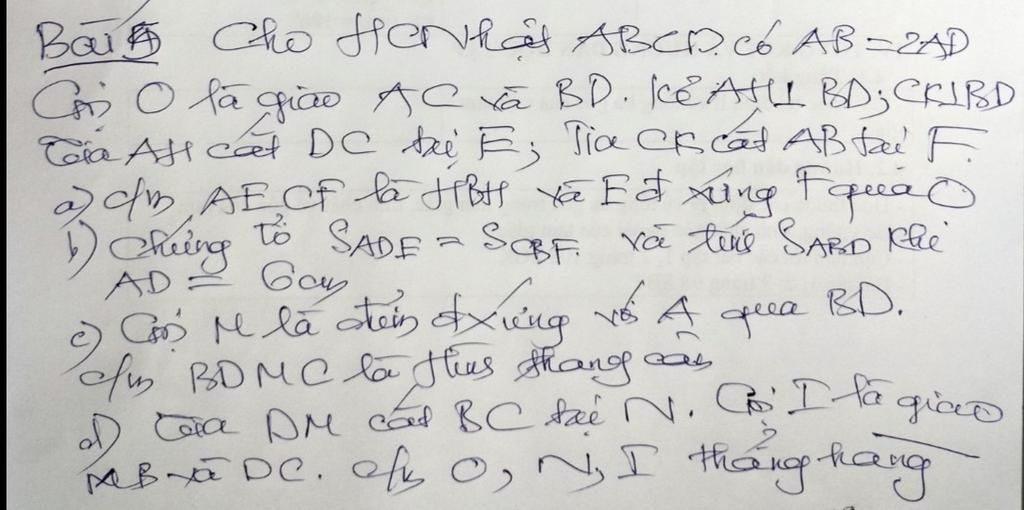 Bài 5 Cho HCNhật ABCD. có AB = 2AD
Gọi O là giao AC và BD. Kẻ AH⊥ BD; CK⊥BD
Tia AH cắt DC tại E; Tia CK cắt AB tại F.
a) c/m AECF là HBH và E đ xứng F qua O
b) Chứng tỏ SADE = SCBF. và tính SABD khi
AD = 6cm
c) Gọi M là điểm đxứng với A qua BD.
c/m BDMC là Hình thang cân
d) Tia DM cắt BC tại N. Gọi I là giao
MB và DC. c/m O, N, I thẳng hàng